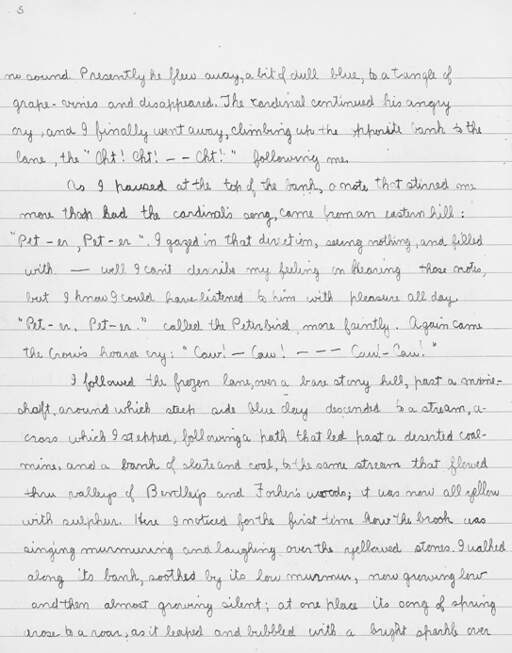 5
no sound. Presently he flew away, a bit of dull blue, to a tangle of
grape-vines and disappeared. The cardinal continued his angry
cry, and I finally went away, climbing up the opposite bank to the
lane, the "Cht! Cht! -- Cht!" following me.
As I paused at the top of the bank, a note that stirred me
more than had the cardinal's song, came from an eastern hill:
"Pet-er, Pet-er". I gazed in that direction, seeing nothing, and filled
with — well I can't describe my feeling on hearing those notes,
but I know I could have listened to him with pleasure all day.
"Pet-er, Pet-er." called the Peterbird, more faintly. Again came
the Crow's hoarse cry: "Caw! — Caw! --- Caw!-Caw!"
I followed the frozen lane, over a bare stony hill, past a mine-
shaft, around which steep side blue clay descended to a stream, a-
cross which I stepped, following a path that led past a deserted coal-
mine, and a bank of slate and coal, to the same stream that flowed
thru valleys of and woods; it was now all yellow
with sulphur. Here I noticed for the first time how the brook was
singing murmuring and laughing over the yellowed stones. I walked
along its bank, soothed by its low murmur, now growing low
and then almost growing silent; at one place its song of spring
arose to a roar, as it leaped and bubbled with a bright sparkle over